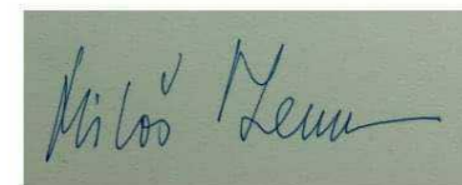 Miloš Zeman